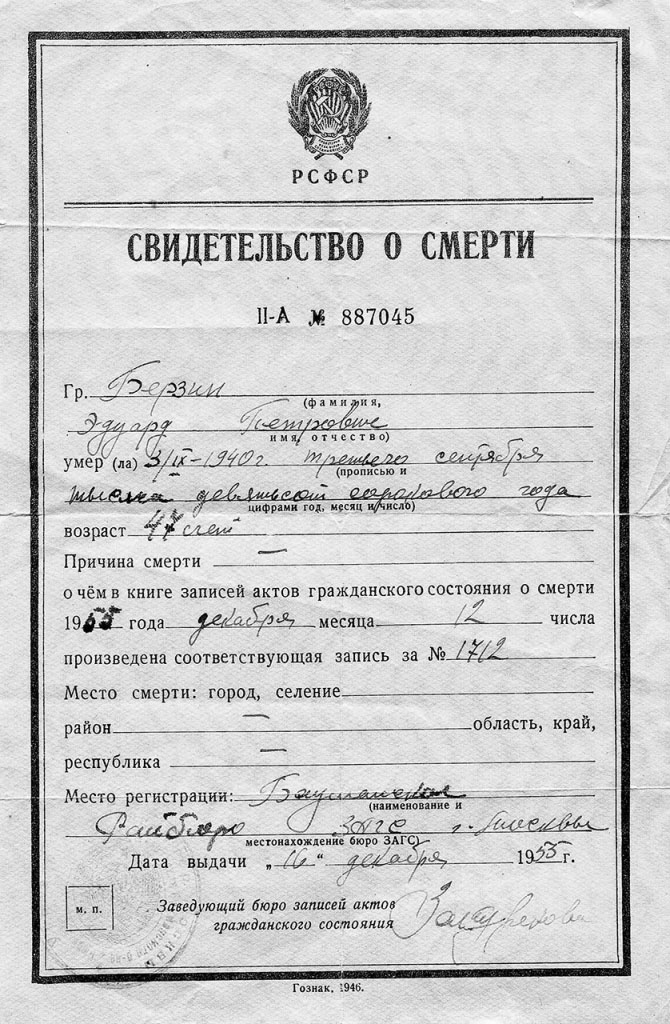 РСФСР
СВИДЕТЕЛЬСТВО О СМЕРТИ
II-А № 887045
Гр. Берзин
(фамилия,
Эдуард Петрович
имя, отчество)
умер (ла) 3/IX-1940г. третьего сентября
(прописью и
тысяча девятьсот сорокового года
цифрами год, месяц и число)
возраст 47 лет
Причина смерти —
о чём в книге записей актов гражданского состояния о смерти
1955 года декабря месяца 12 числа
произведена соответствующая запись за № 1712
Место смерти: город, селение
район — область, край,
республика —
Место регистрации: Бауманское
(наименование и
Райбюро ЗАГС г. Москвы
местонахождение бюро ЗАГС)
Дата выдачи „16“ декабря 1955 г.
м. п.
Заведующий бюро записей актов
гражданского состояния
Гознак, 1946.